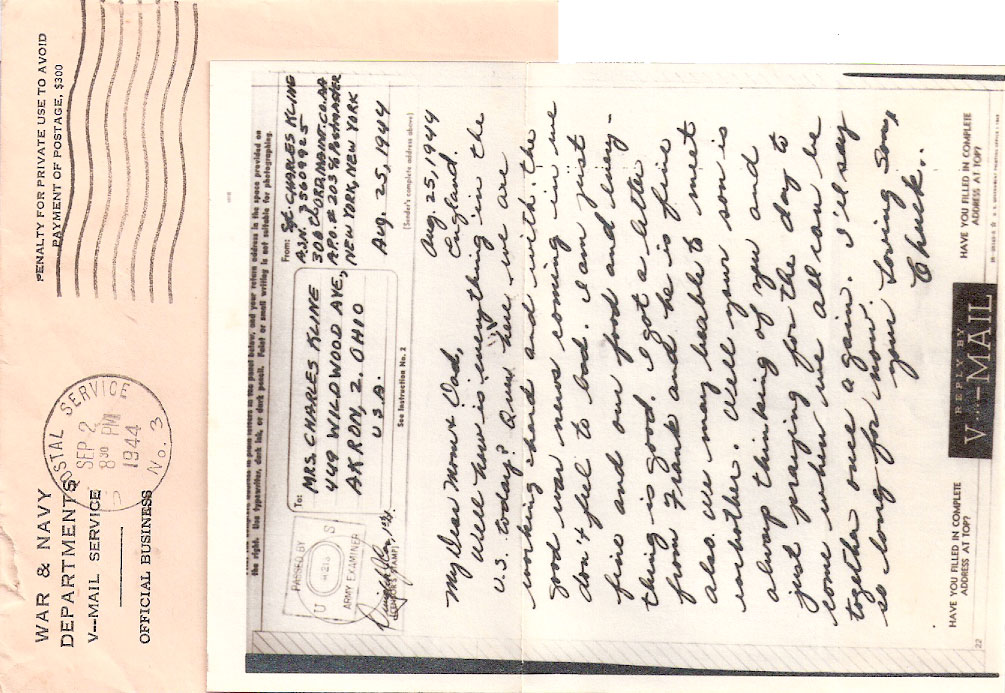 WAR & NAVY
DEPARTMENTS
V--MAIL SERVICE
OFFICIAL BUSINESS
POSTAL SERVICE
SEP 2
8 30 PM
1944
No. 3
PENALTY FOR PRIVATE USE TO AVOID
PAYMENT OF POSTAGE, $300
the right. Use typewriter, dark ink, or dark pencil. Faint or small writing is not suitable for photographing.
PASSED BY
U S
ARMY EXAMINER
To:
MRS. CHARLES KLINE
449 WILDWOOD AVE,
AKRON, 2. OHIO
U.S.A.
From:
Sgt. CHARLES KLINE
A.S.N. 35609925
308 ORD. MAINT. CO. AA
A.P.O. # 203 % Postmaster
NEW YORK, NEW YORK
Aug. 25, 1944
See Instruction No. 2
(Sender's complete address above)
Aug. 25, 1944
England.
My Dear Mom & Dad,
Well how is everything in the
U.S. today? Over here we are
working hard and with the
good war news coming in we
don't feel to bad. I am just
fine and our food and every-
thing is good. I got a letter
from Frank and he is fine
also. We may be able to meet
each other. Well your son is
always thinking of you and
just praying for the day to
come when we all can be
together once again. I'll say
so long for now.
your Loving Son,
Chuck.
HAVE YOU FILLED IN COMPLETE
ADDRESS AT TOP?
REPLY BY
V---MAIL
HAVE YOU FILLED IN COMPLETE
ADDRESS AT TOP?